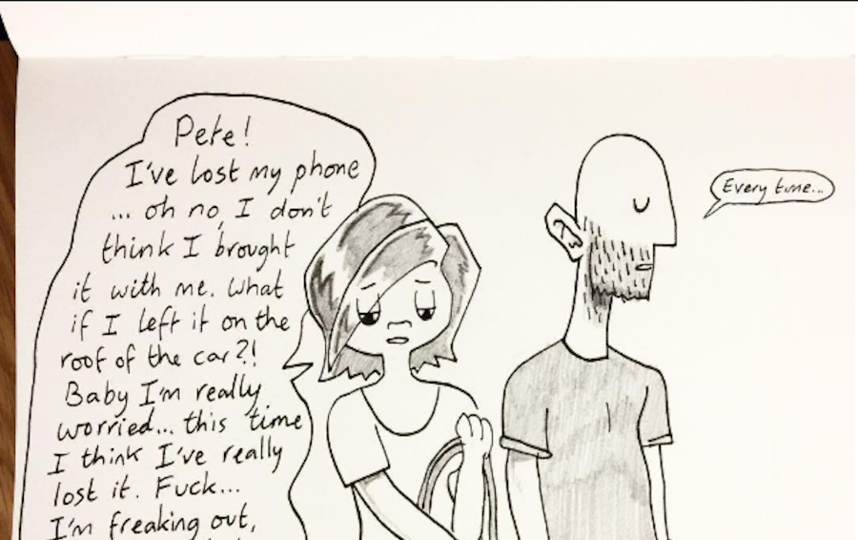 Pete!
I've lost my phone
... oh no, I don't
think I brought
it with me. What
if I left it on the
roof of the car?!
Baby I'm really
worried... this time
I think I've really
lost it. Fuck...
I'm freaking out,
Every time...